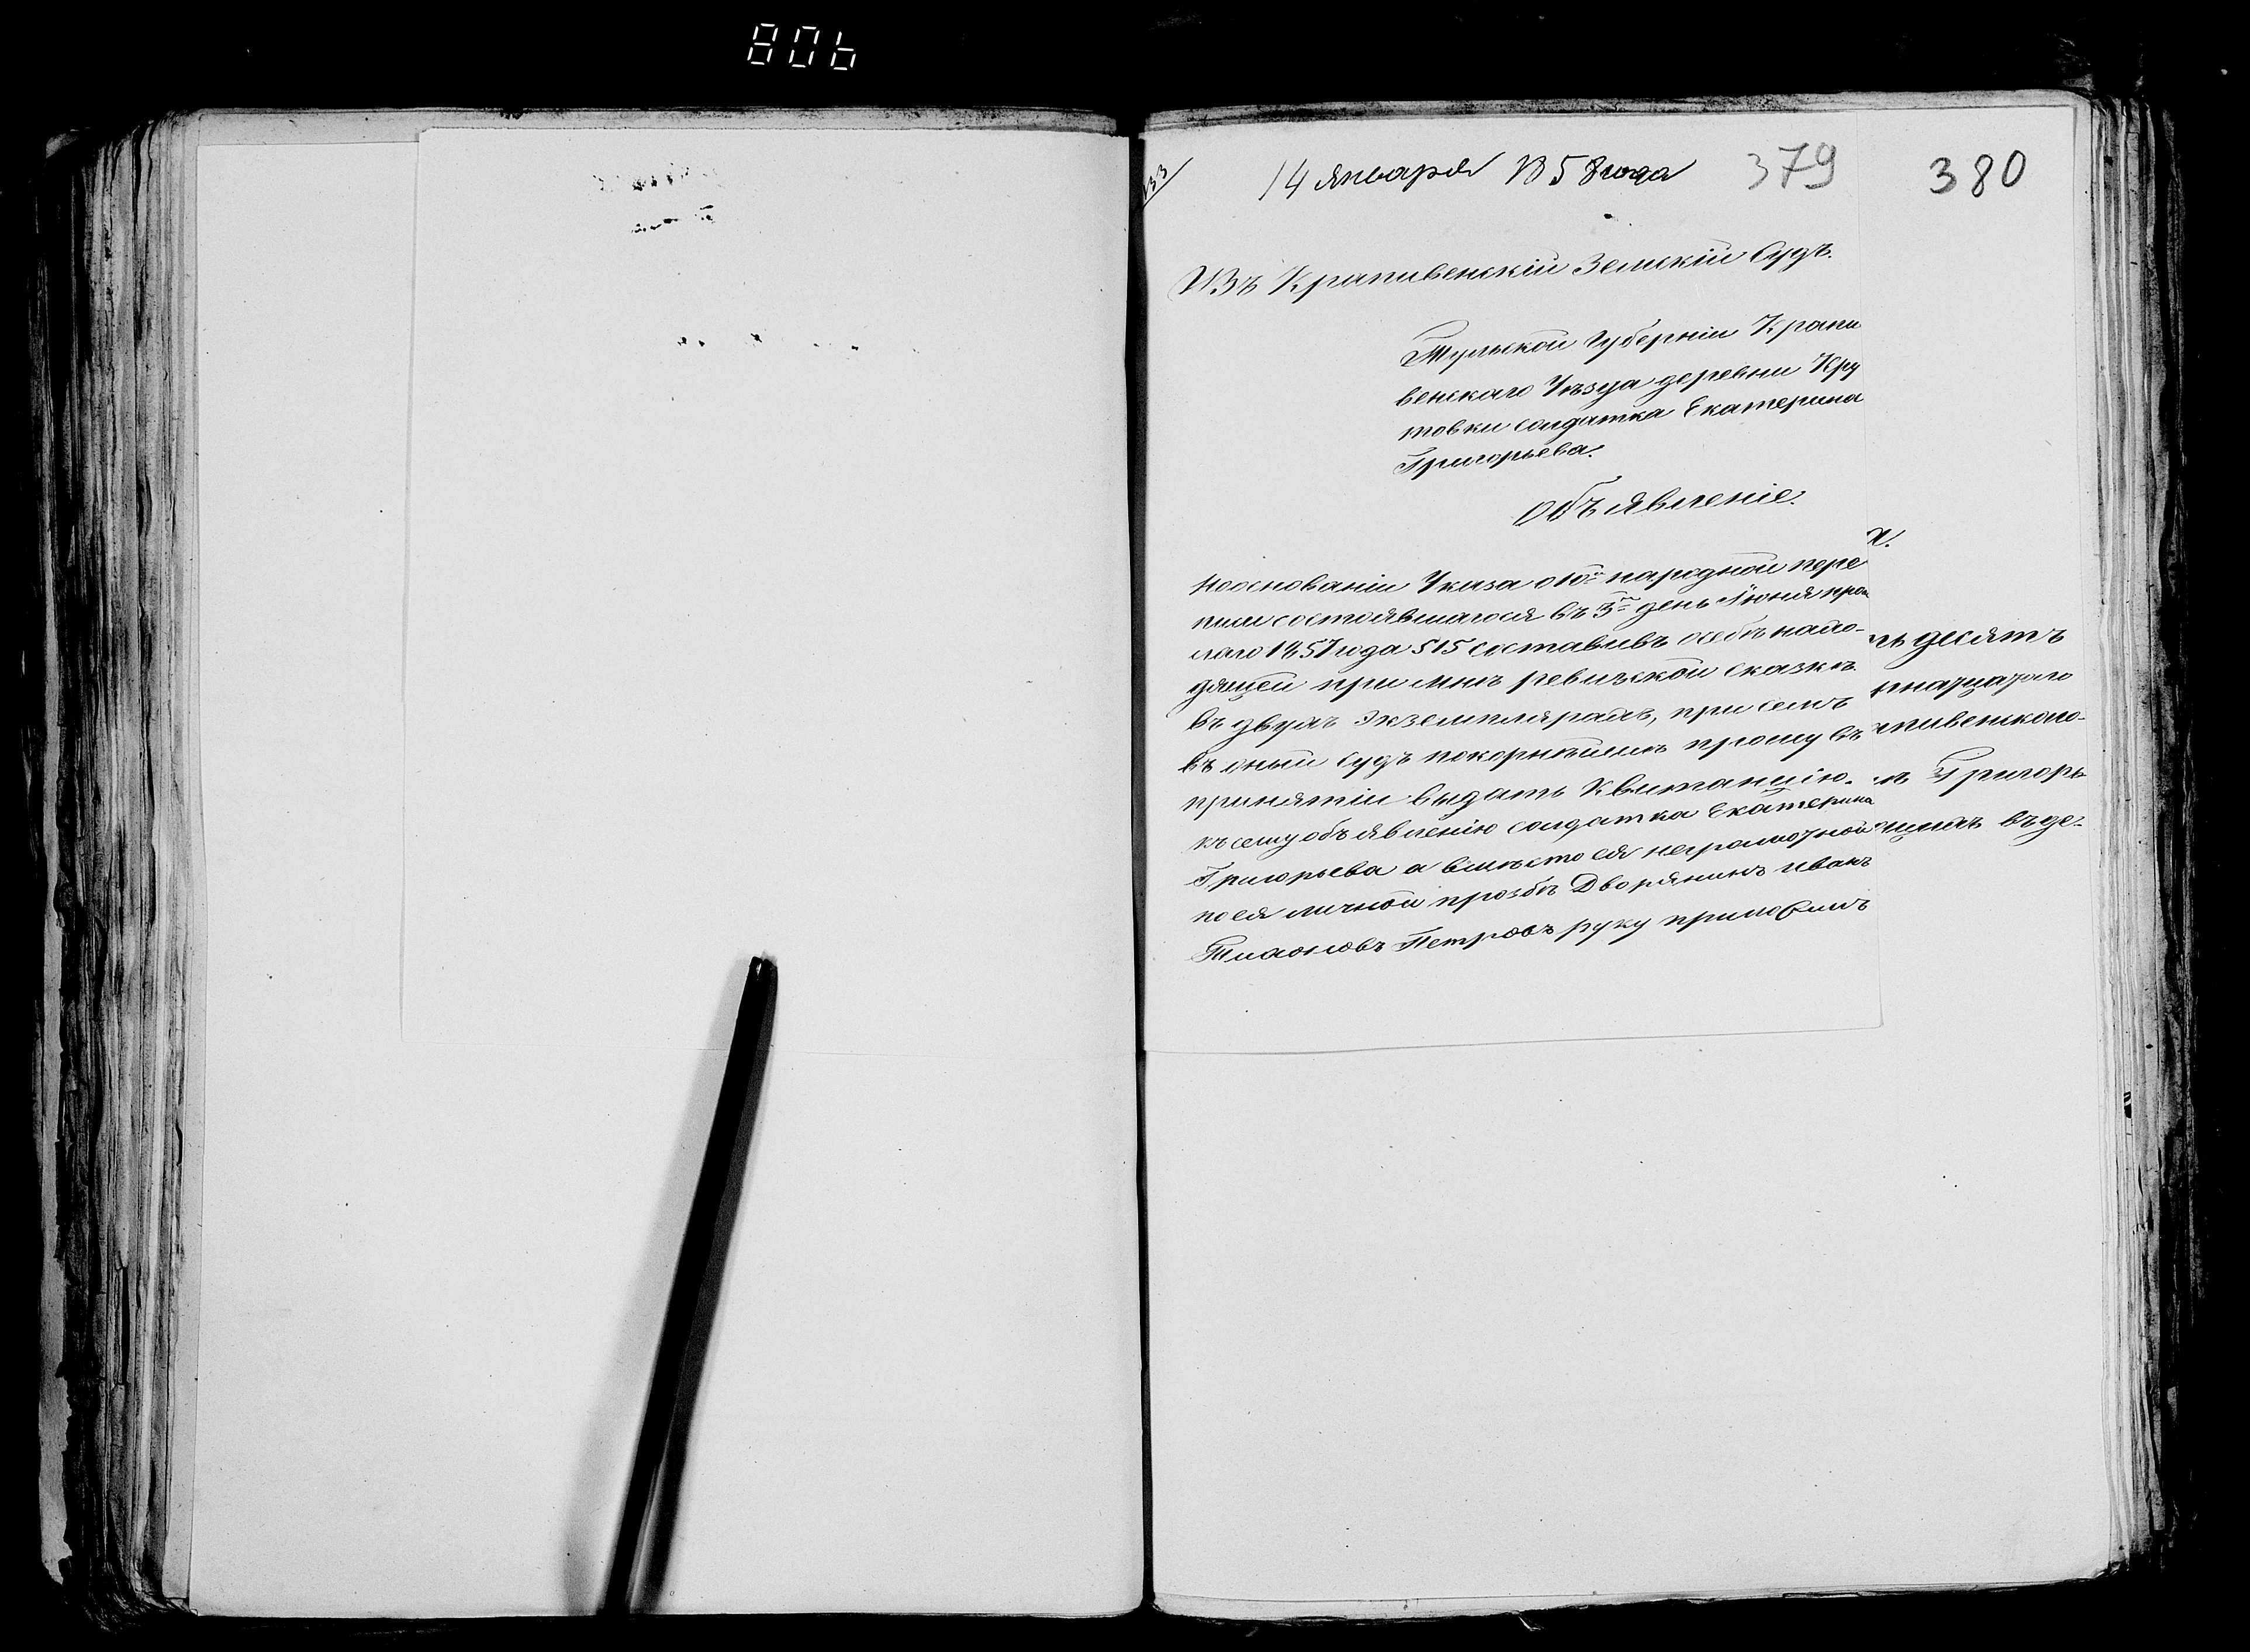 806
133
14 января 1858 года 379 380
Въ Крапивенскій Земскій Судъ.
Тульской Губерніи Крапи
венскаго Уѣзда деревни Кру
товки солдатка Екатерина
Григорьева.
Объявленіе.
Наоснованіи Указа о 10й народной пере
писи состоявшагося въ 3й день Іюня прош
лаго 1857 года § 15 составивъ осебѣ нахо-
дящей при мнѣ ревижской сказкѣ
въ двухъ Экземплярахъ, при семъ
въ оный Судъ покорнѣйше прошу въ
принятіи выдать Квитанцію.
къ сему объявленію солдатка Екатерина
Григорьева а вмѣсто ея неграмотной
по ея личной прозбѣ Дворянинъ Иванъ
Петровъ руку приложилъ
ь десятъ
надцатаго
пивенскаго
Григорь
въ де-